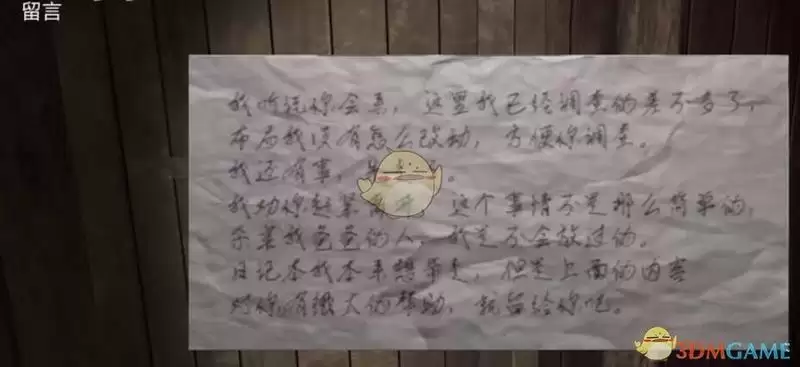 留言
我听说你会来，这里我已经调查的差不多了，
布局我没有怎么改动，方便你调查。
我还有事，先走。
我劝你赶紧离开，这个事情不是那么简单的，
杀害我爸爸的人，我是不会放过的。
日记本我本来想带走，但是上面的内容
对你有很大的帮助，就留给你吧。
3DMGAME